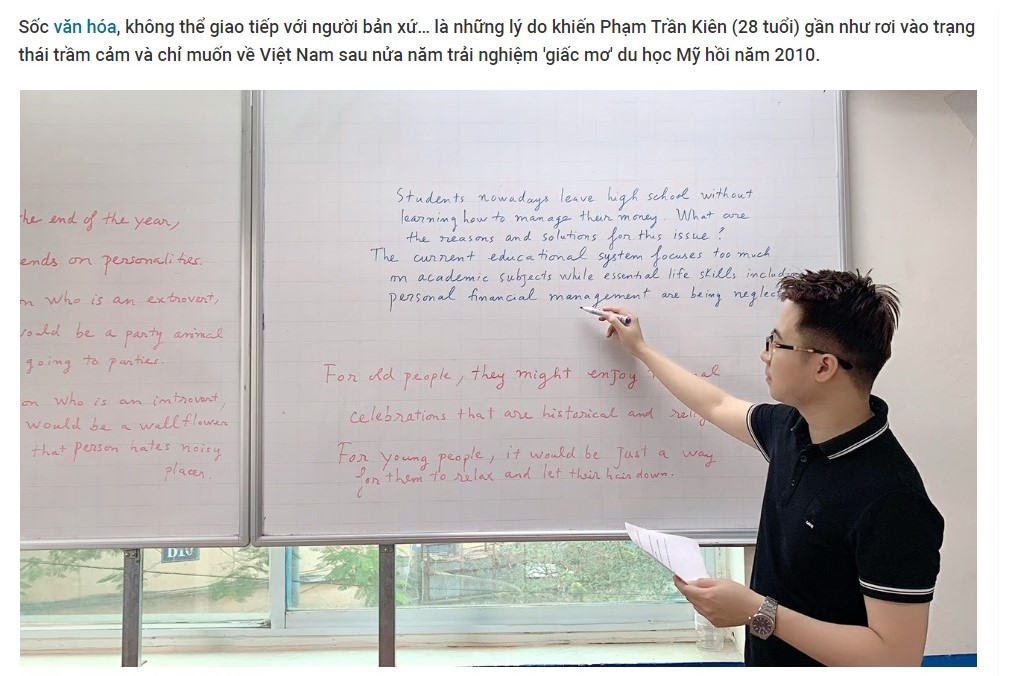 Sốc văn hóa, không thể giao tiếp với người bản xứ... là những lý do khiến Phạm Trần Kiên (28 tuổi) gần như rơi vào trạng
thái trầm cảm và chỉ muốn về Việt Nam sau nửa năm trải nghiệm 'giấc mơ' du học Mỹ hồi năm 2010.
he end of the year,
ends on personalities.
n who is an extrovert,
ould be a party animal
going to parties.
on who is an introvert,
would be a wallflower
that person hates noisy
places.
Students nowadays leave high school without
learning how to manage their money. What are
the reasons and solutions for this issue?
The current educational system focuses too much
on academic subjects while essential life skills includ
personal financial management are being neglect
For old people, they might enjoy al
celebrations that are historical and reli
For young people, it would be just a way
for them to relax and let their hair down.
B10